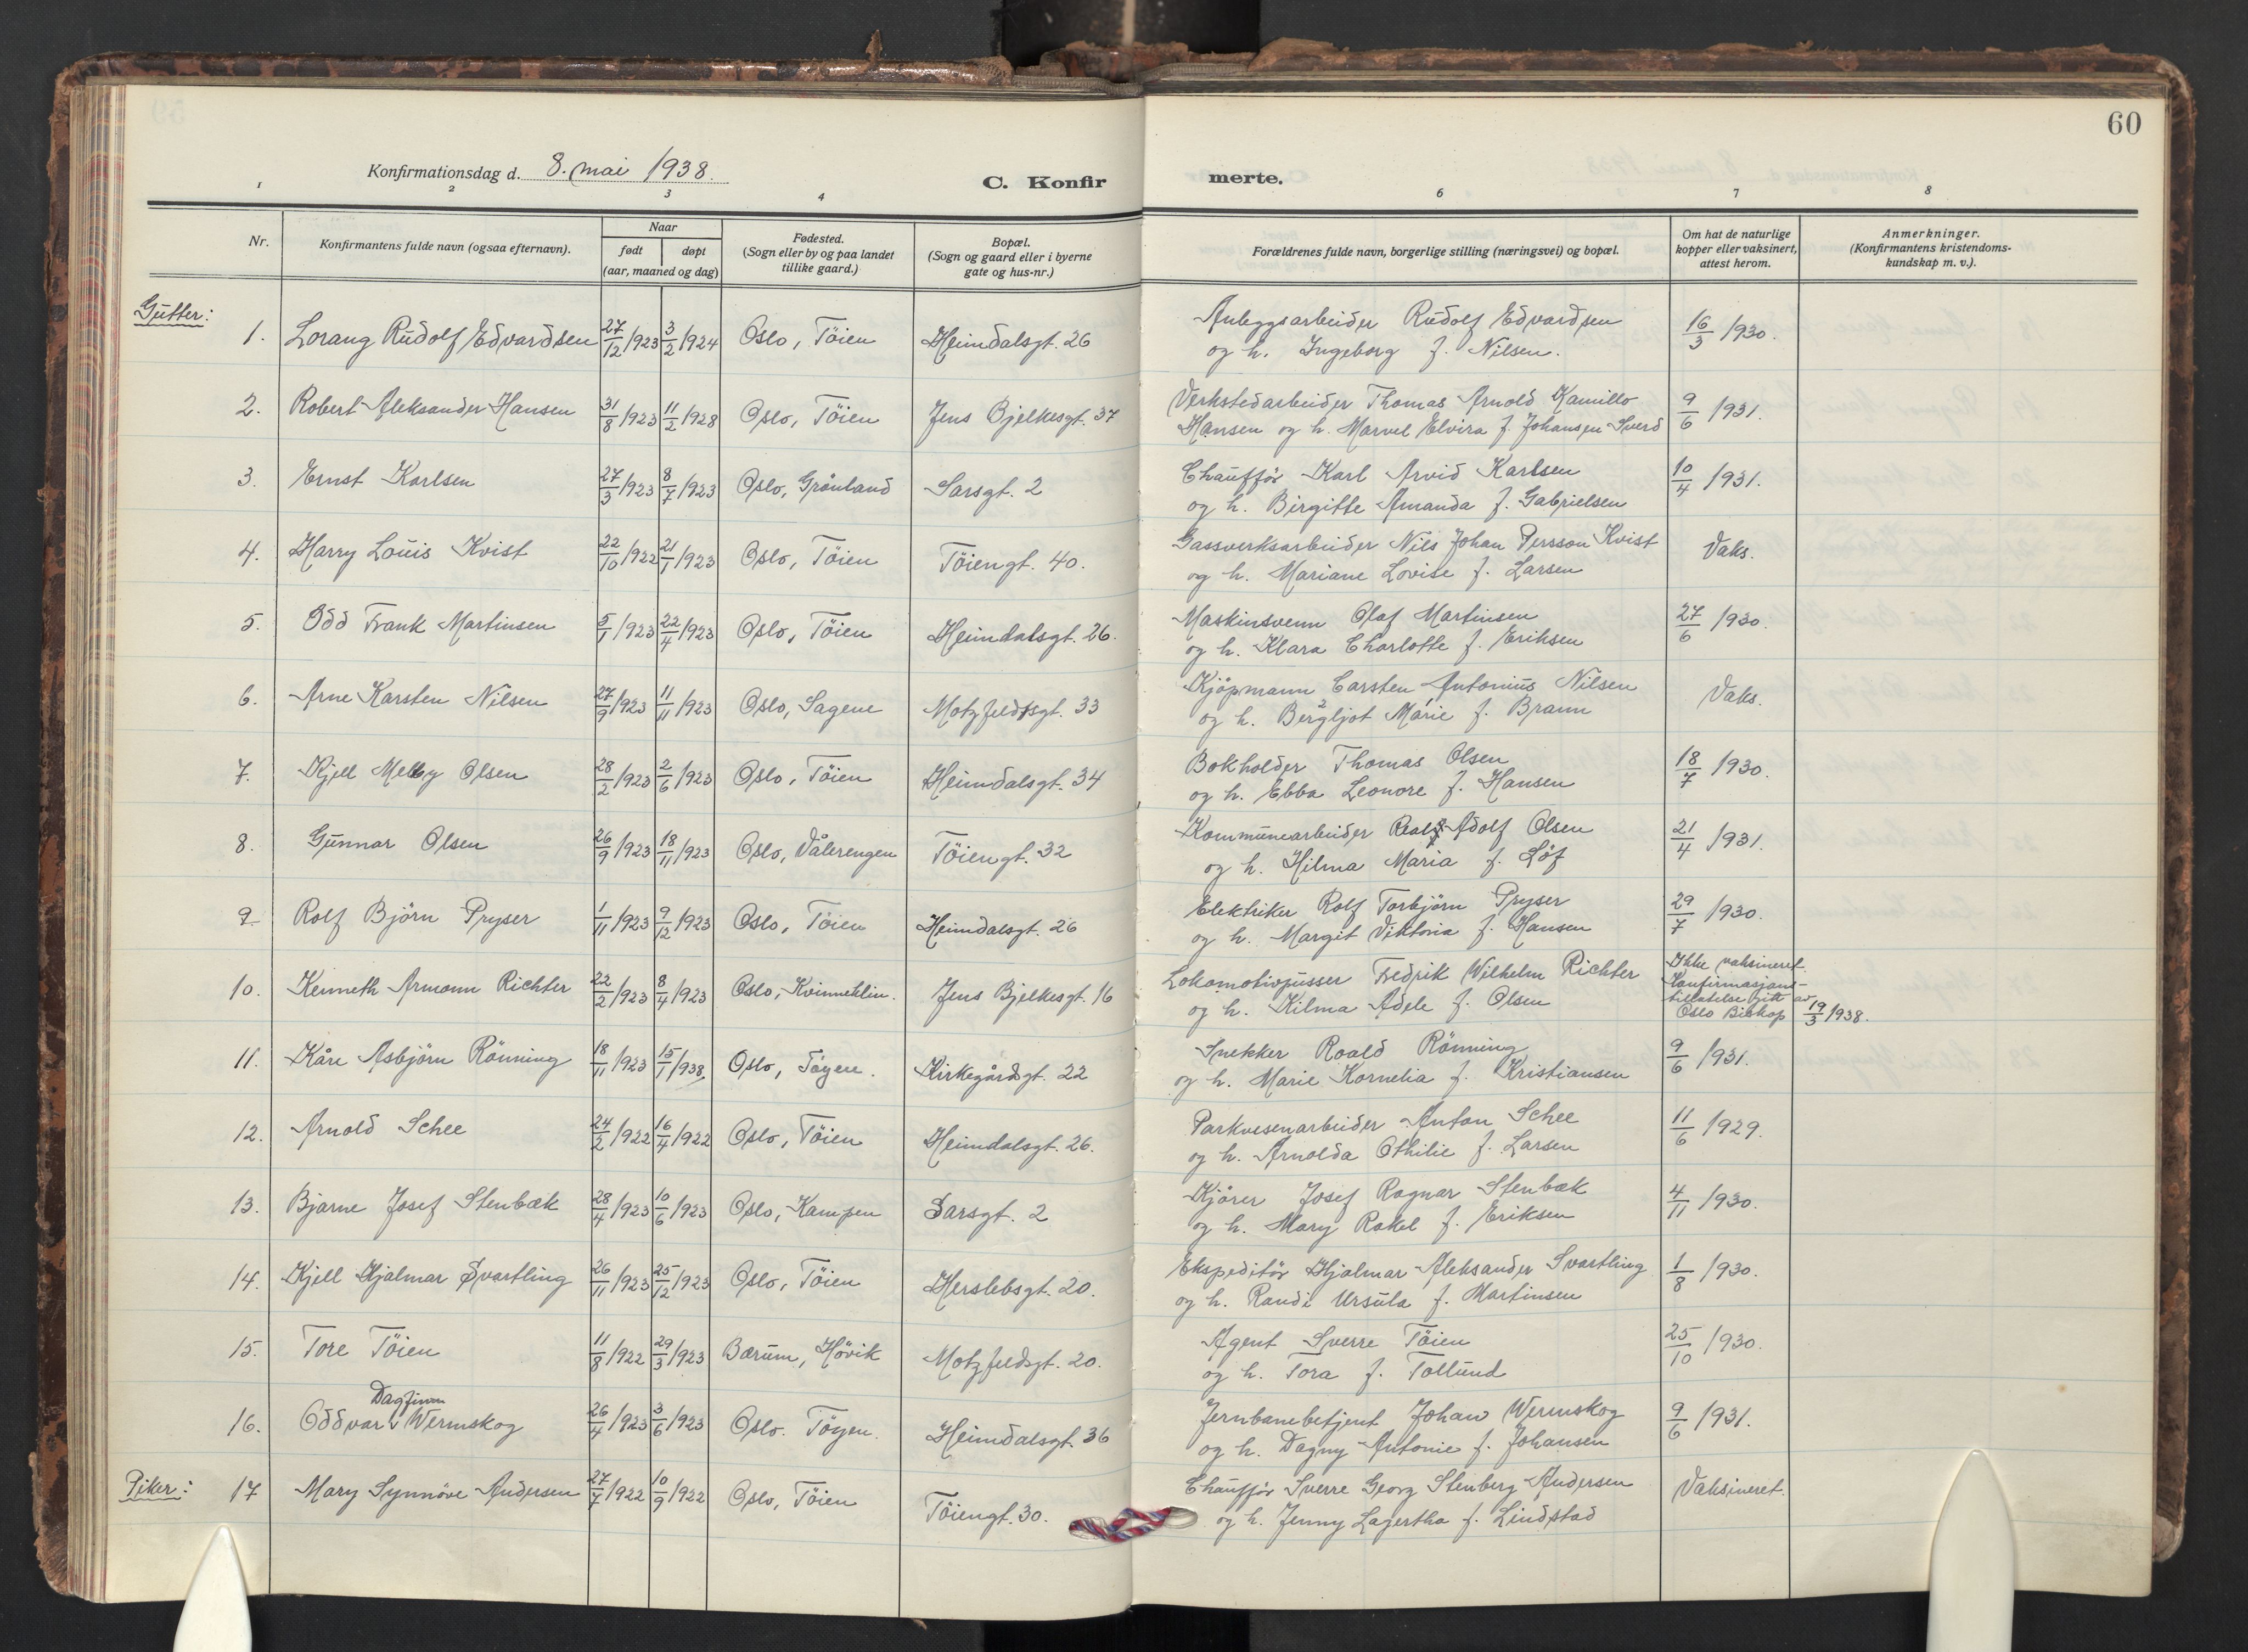 60
Konfirmationsdag d. 8. mai 1938.
C. Konfir
merte.
1 2 3 4 6 7 8
Nr. Konfirmantens fulde navn (ogsaa efternavn). Naar født døpt (aar, maaned og dag) Fødested. (Sogn eller by og paa landet tillike gaard.) Bopæl. (Sogn og gaard eller i byerne gate og hus-nr.) Forældrenes fulde navn, borgerlige stilling (næringsvei) og bopæl. Om hat de naturlige kopper eller vaksinert, attest herom. Anmerkninger. (Konfirmantens kristendoms-kundskap m. v.).
Gutter:
1. Lorang Rudolf Edvardsen 27/12 1923 3/2 1924 Oslo, Töien Heimdalsgt. 26 Anleggsarbeider Rudolf Edvardsen 16/3 1930.
og h. Ingeborg f. Nilsen.
2. Robert Aleksander Hansen 31/8 1923 11/2 1928 Oslo, Töien Jens Bjelkesgt. 37 Verkstedarbeider Thomas Arnold Kamillo 9/6 1931.
Hansen og h. Marvel Elvira f. Johansen-Sverd
3. Ernst Karlsen 27/3 1923 8/7 1923 Oslo, Grönland Sarsgt. 2 Chauffør Karl Arvid Karlsen 10/4 1931.
og h. Birgitte Amanda f. Gabrielsen
4. Harry Louis Kvist 22/10 1922 21/1 1923 Oslo, Töien Töiengt. 40. Gassverksarbeider Nils Johan Persson Kvist Vaks.
og h. Mariane Lovise f. Larsen
5. Odd Frank Martinsen 5/1 1923 22/4 1923 Oslo, Töien Heimdalsgt. 26. Maskinsvenn Olaf Martinsen 27/6 1930.
og h. Klara Charlotte f. Eriksen
6. Arne Karsten Nilsen 27/9 1923 11/11 1923 Oslo, Sagene Motzfeldtsgt. 33 Kjøpmann Carsten Antonius Nilsen Vaks.
og h. Bergljot Marie f. Braun
7. Kjell Melby Olsen 28/2 1923 2/6 1923 Oslo, Töien Heimdalsgt. 34 Bokholder Thomas Olsen 18/7 1930.
og h. Ebba Leonore f. Hansen
8. Gunnar Olsen 26/9 1923 18/11 1923 Oslo, Vålerengen Töiengt. 32 Kommunearbeider Adolf Olsen 21/4 1931.
og h. Hilma Maria f. Löf
9. Rolf Björn Pryser 1/11 1923 9/12 1923 Oslo, Töien Heimdalsgt. 26 Elektriker Rolf Torbjörn Pryser 29/7 1930.
og h. Margit Viktoria f. Hansen
10. Kenneth Armann Richter 22/2 1923 8/4 1923 Oslo, Kvinneklin. Jens Bjelkesgt. 16 Lokomotivpusser Fredrik Wilhelm Richter Ikke vaksineret.
Konfirmasjons-
tillatelse gitt av
og h. Hilma Adele f. Olsen Oslo Biskop 19/3 1938.
11. Kåre Asbjörn Rönning 18/11 1923 15/1 1938. Oslo, Töyen. Kirkegårdsgt. 22 Snekker Roald Rönning 9/6 1931.
og h. Marie Kornelia f. Kristiansen
12. Arnold Schee 24/2 1922 16/4 1922 Oslo, Töien Heimdalsgt. 26. Parkvesenarbeider Anton Schee 11/6 1929.
og h. Arnolda Othilie f. Larsen
13. Bjarne Josef Stenbæk 28/4 1923 10/6 1923 Oslo, Kampen Sarsgt. 2 Kjörer Josef Ragnar Stenbæk 4/11 1930.
og h. Mary Rakel f. Eriksen
14. Kjell Hjalmar Svartling 26/11 1923 25/12 1923 Oslo, Töien Herslebsgt. 20. Ekspeditör Hjalmar Aleksander Svartling 1/8 1930.
og h. Randi Ursula f. Martinsen
15. Tore Töien 11/8 1922 29/3 1923 Bærum, Hövik Motzfeldsgt. 20. Agent Sverre Töien 25/10 1930.
og h. Tora f. Tollund
Dagfinn
16. Oddvar v Wermskog 26/4 1923 3/6 1923 Oslo. Töyen. Heimdalsgt. 36 Jernbanebetjent Johan Wermskog 9/6 1931.
og h. Dagny Antonie f. Johansen
Piker: 17 Mary Synnöve Andersen 27/7 1922 10/9 1922 Oslo, Töien Töiengt. 30. Chauffør Sverre Georg Stenberg Andersen Vaksineret.
og h. Jenny Lagertha f. Lindstad